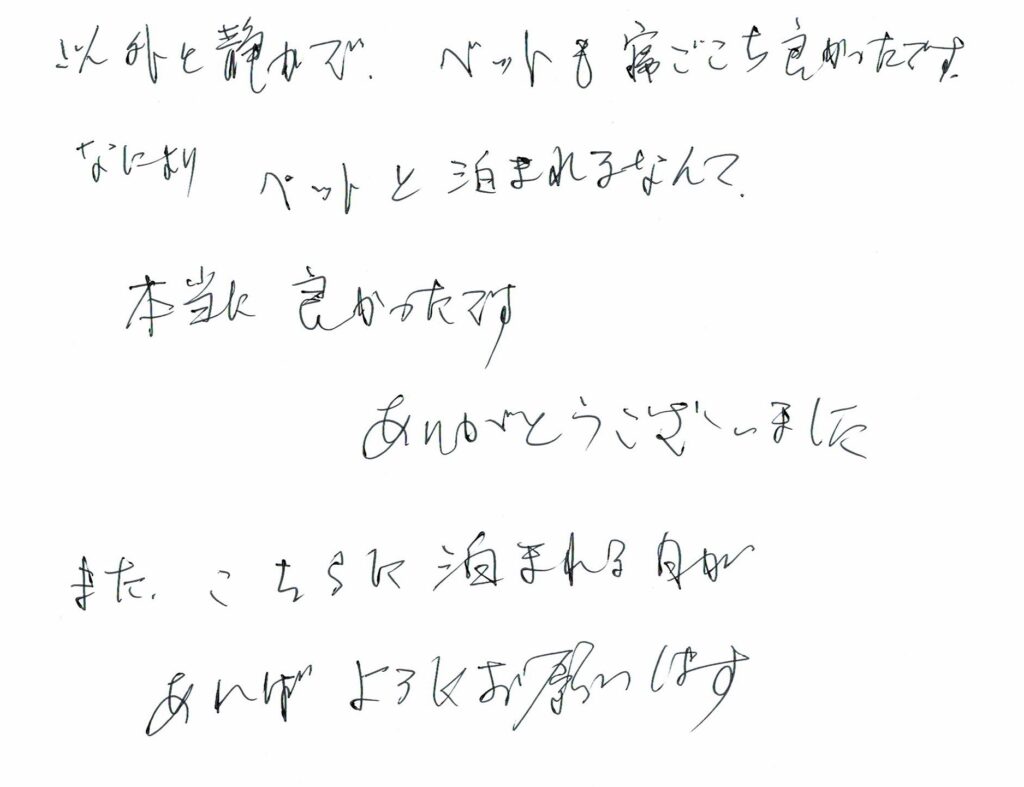 以外と静かで、ベットも寝ごこち良かったです。
なにより ペットと泊まれるなんて、
本当に良かったです
ありがとうございました
また、こちらに泊まれる日が
あればよろしくお願いします